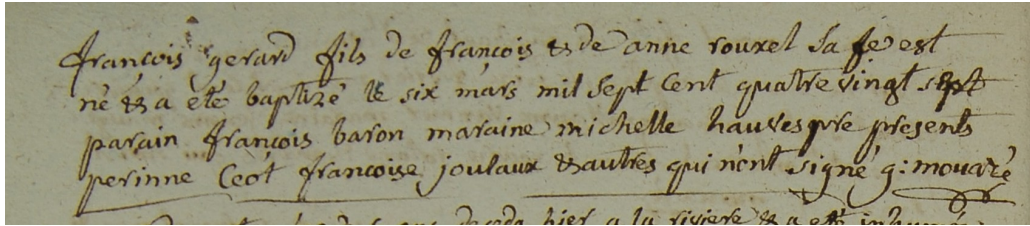 françois gerard fils de françois & de anne rouxel sa fe est
né & a eté baptizé le six mars mil sept cent quatre vingt sept
parain françois baron maraine michelle hauvespre presents
perinne Ceot francoise joulaux & autres qui n'ont signé g: mouazé
decedé hier a la riviere & a eté inhumé